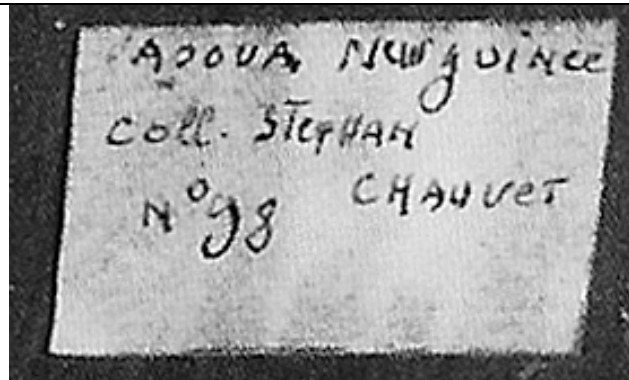 PAPOUA, NEW guinee
Coll. STEPHAN
N° 98 CHAUVET